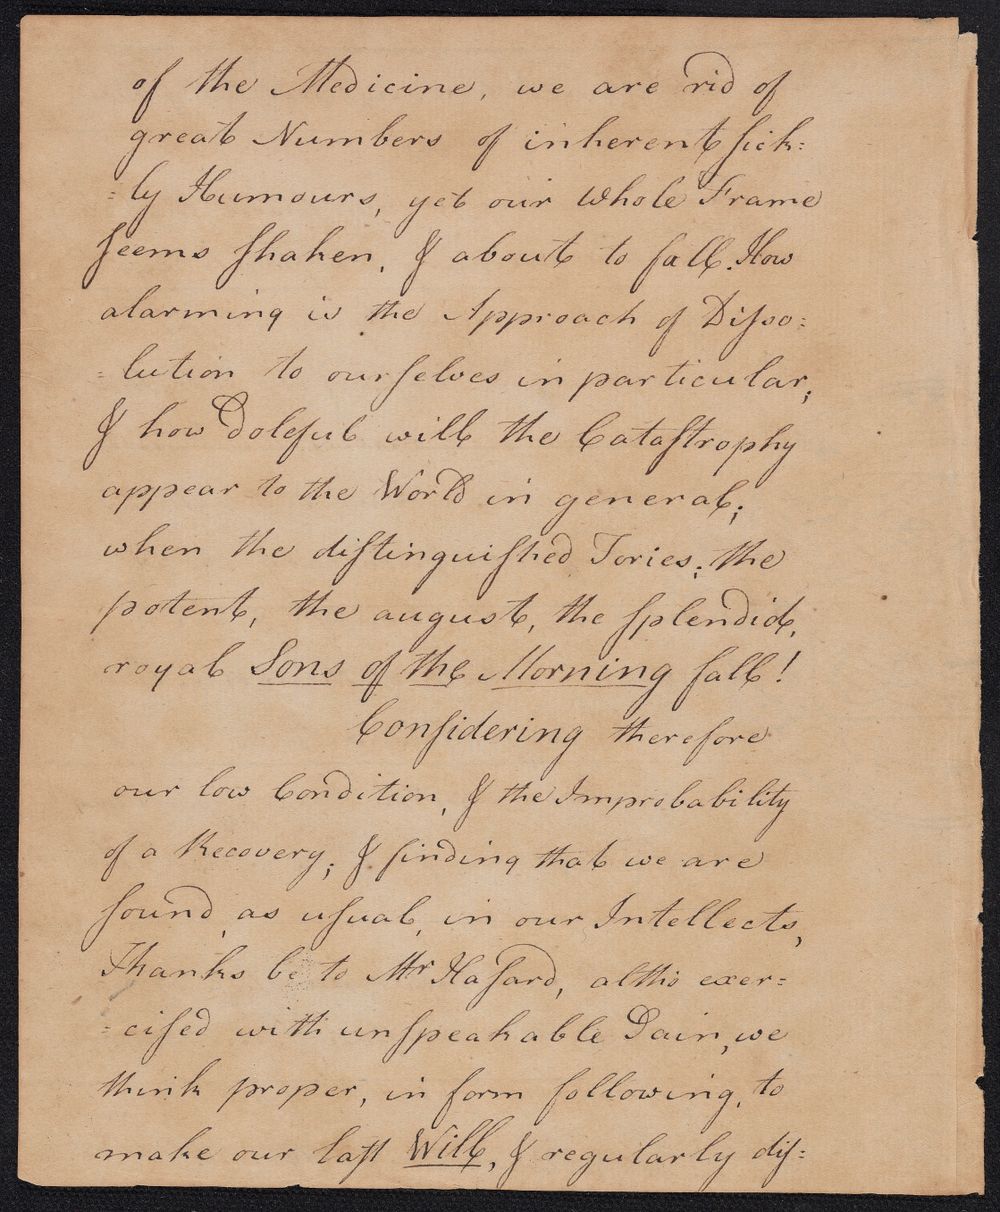 of the Medicine, we are rid of
great Numbers of inherent sick:
:ly Humours, yet our whole Frame
seems shaken, & about to fall. How
alarming is the Approach of Disso:
:lution to ourselves in particular;
& how doleful will the Catastrophy
appear to the World in general;
when the distinguished Tories; the
potent, the august, the splendid,
royal Sons of the Morning fall!
Considering therefore
our low Condition, & the Improbability
of a Recovery; & finding that we are
sound, as usual, in our Intellects,
Thanks be to Mr Hasard, altho exer:
:cised with unspeakable Pain, we
think proper, in form following, to
make our last Will, & regularly dis: